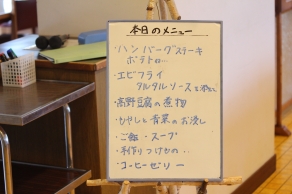 本日のメニュー
・ハンバーグステーキ
ポテトロ…
・エビフライ
タルタルソースを添えて
・高野豆腐の煮物
・もやしと青菜のお浸し
・ご飯・スープ
・手作りつけもの…
・コーヒーゼリー